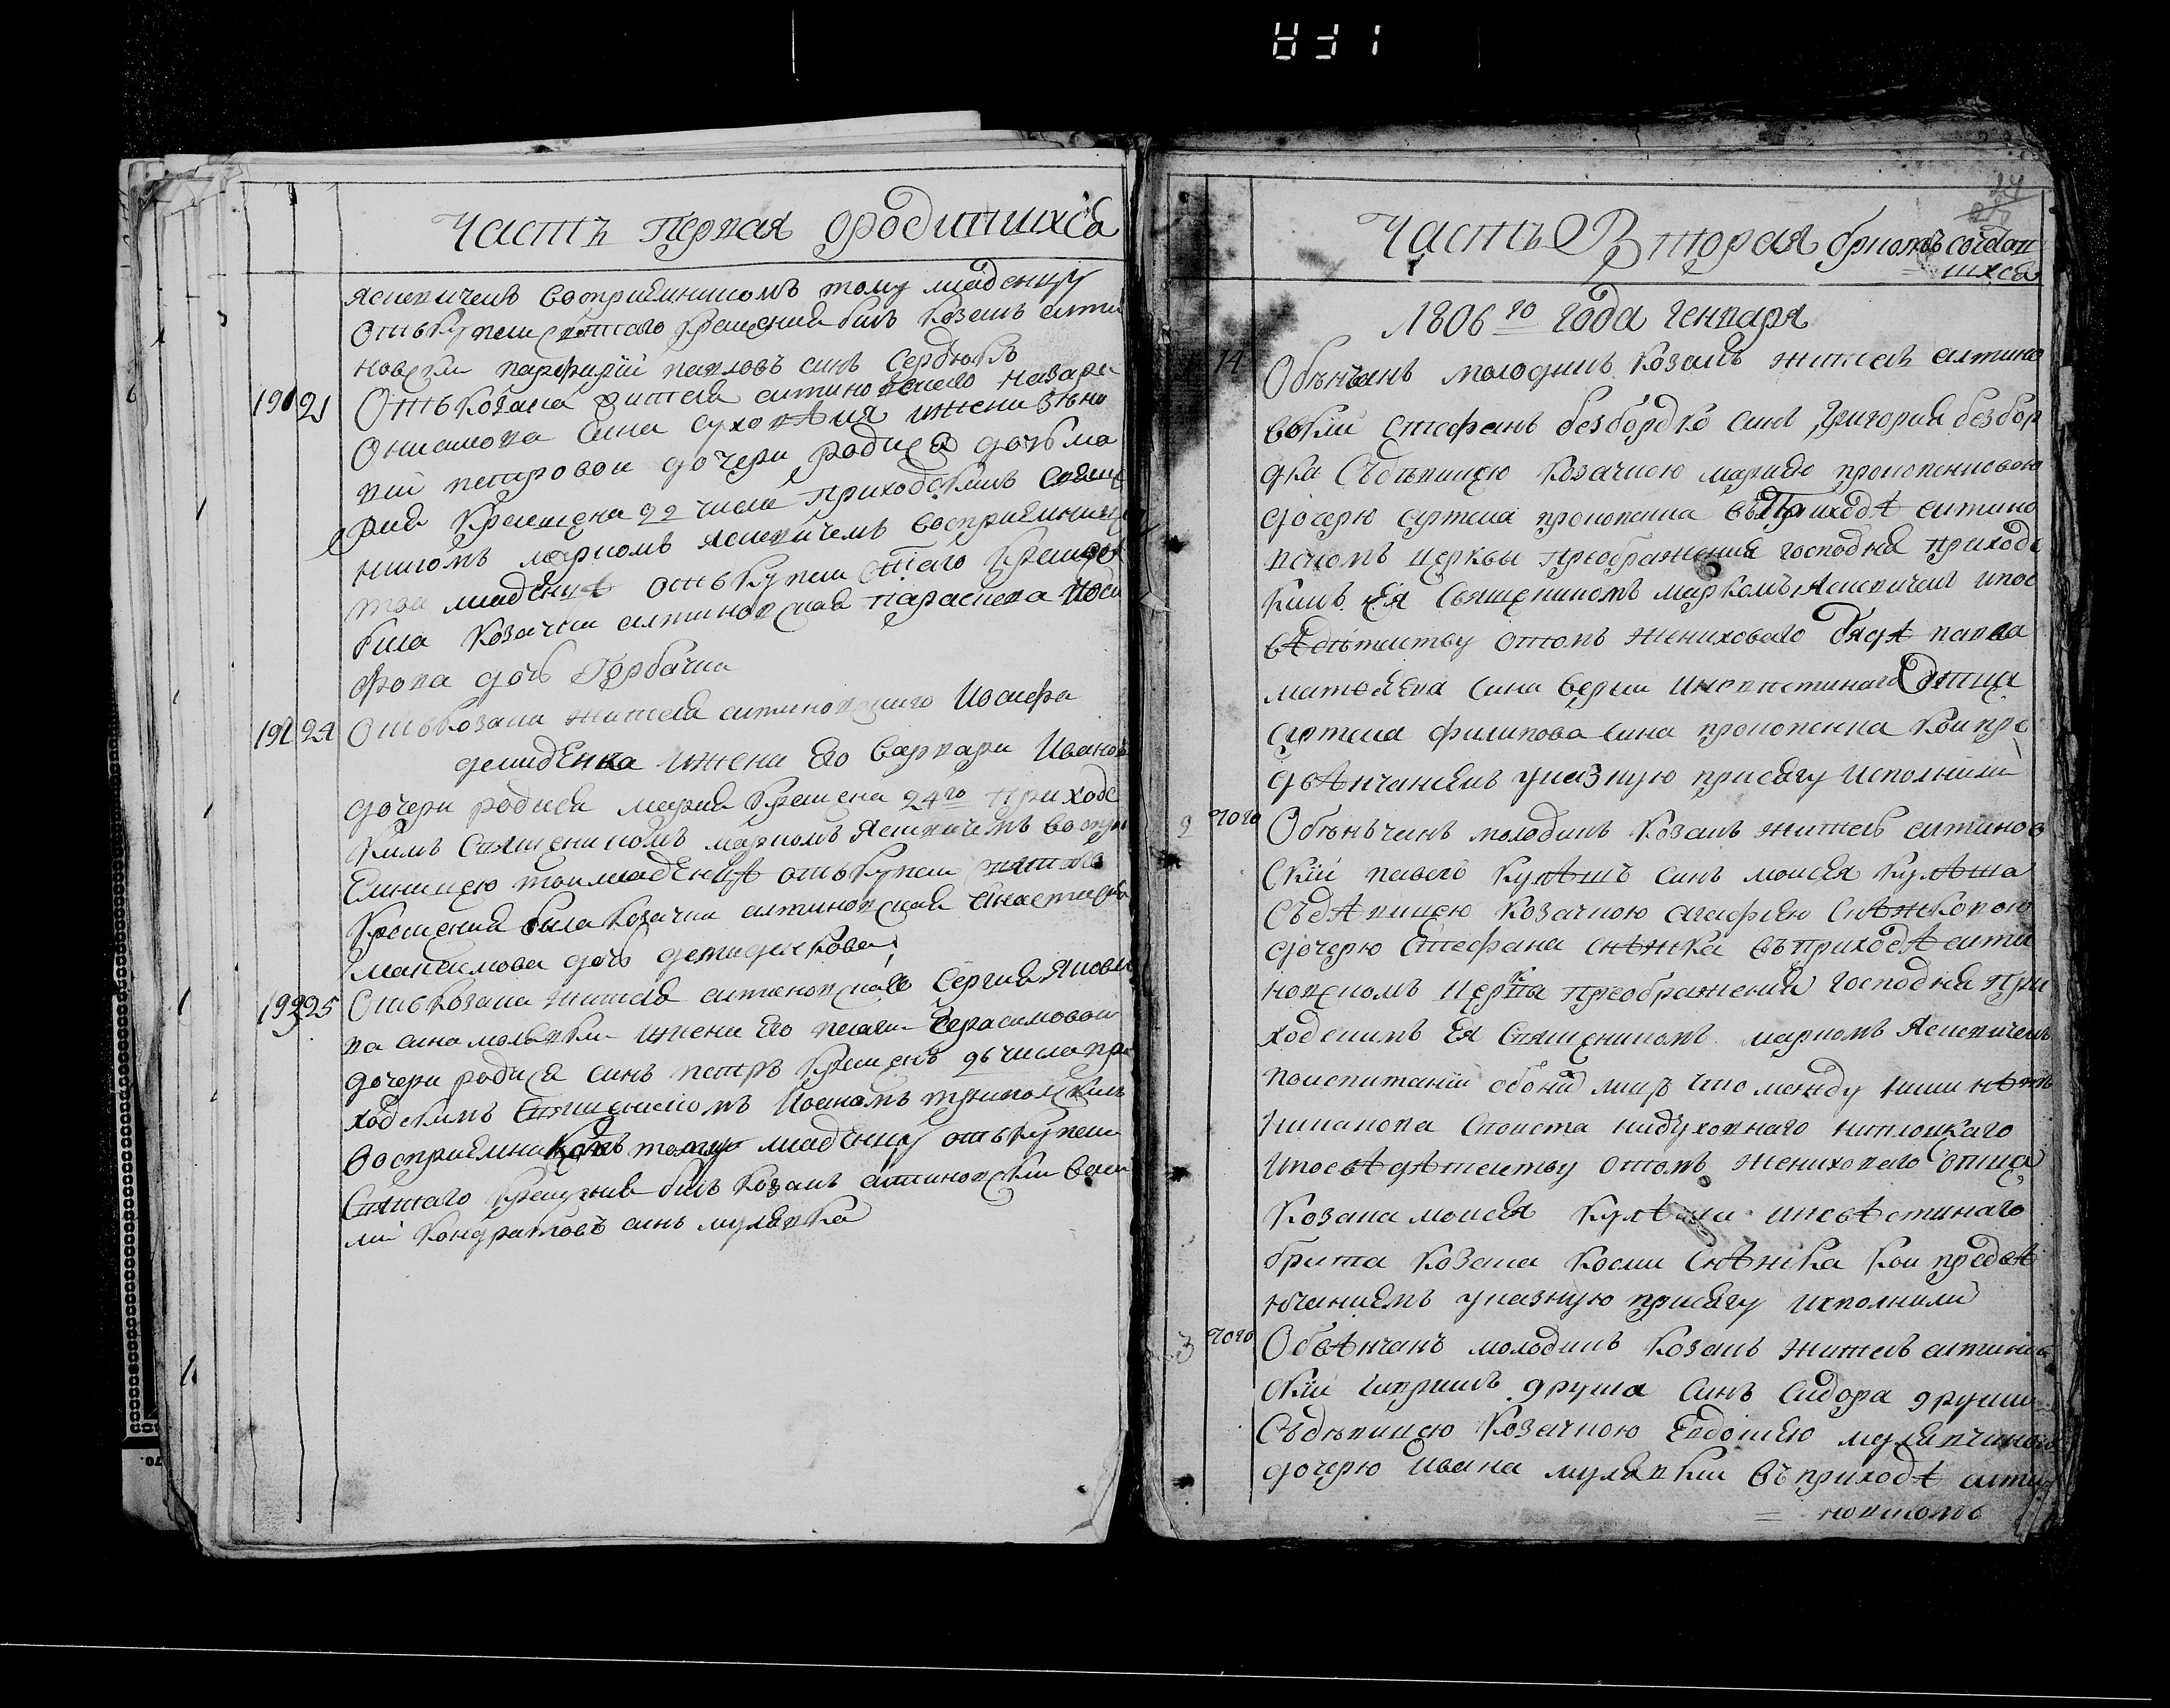 Часть Первая о родившихся
Ясневичемъ восприемникомъ тому младенцу
отъ купели святаго крещения билъ козакъ алти
новски парфирий павловъ синъ Сердюкъ
191 21 Отъ козака жителя алтиновского назара
сина ижени
вий петровои дочери родися дочь ма
рия крещена 22 числа приходскимъ Свяще
никомъ маркомъ Ясневичемъ восприемнице
той младенцѣ отъ купели стаго крещен
била козачка алтиновская параскева
дочь Горбачка
192 24 Отъ козака жителя алтиновского Иосифа
демидЕнка ижени Его варвари Иванов
дочери родися мария крещена 24го приходс
кимъ Священикомъ маркомъ Ясневичемъ воспри
Емницею той младЕнцѣ отъ купели святаго
крещения била козачка алтиновская Анастасия
максимова дочь демиденкова
193 25 Отъ козака жителя алтиновскаго Сергия Яковле
ва сина молявки ижени Его пелагеи Герасимовои
дочери родися синъ петръ крещенъ 26 числа при
ходскимъ Священикомъ Иоаномъ
восприемникомъ тому младЕнцу отъ купели
Святаго крещения билъ козакъ алтиновски васи
лий кондратовъ синъ мулявка
Часть Вторая обракомъ сочетав
шихся
1806го года генваря
1 14 Обвѣнчанъ молодикъ козакъ житель алтино
вский Стефанъ безбордко синъ Григория безбор
дка Съдѣвицею козачкою мариею прокопенковою
дочерю артема прокопенка въ Приходѣ алтино
вскомъ церкви преображения господня приходс
кимъ Ея Священикомъ маркомъ Ясневичемъ ипос
вѣдѣтелству отомъ жениховаго дядѣ павла
матвѣева сина верги иневѣстинаго Отца
артема филипова сина прокопенка кои пре
двѣнчаниемъ указную присягу исполнили
2 того Обвѣнчанъ молодикъ козакъ житель алтинов
ский павелъ кулѣшъ синъ моисея кулѣша
Съдѣвицею козачкою агафиею Снѣжковою
дочерю Стефана снѣжка въ приходѣ алти
новскомъ церкви преображения господня при
ходскимъ Ея Священикомъ маркомъ Ясневичемъ
поиспитании обоихъ лицъ что между ними нѣтъ
никакова своиства нидуховнаго ниплоцкаго
ипосвѣдѣтелству отомъ жениховаго отца
козака моисея кулѣша иневѣстинаго
брата козака косми Снѣжка кои предвѣ
нчаниемъ указную присягу исполнили
3 того Обвѣнчанъ молодикъ козакъ житель алтинов
ский гаврилъ друшла синъ Сидора друшли
Съдѣвицею козачкою Евдокиею мулявчиною
дочерю ивана мулявки въ приходѣ алти
новскомъ